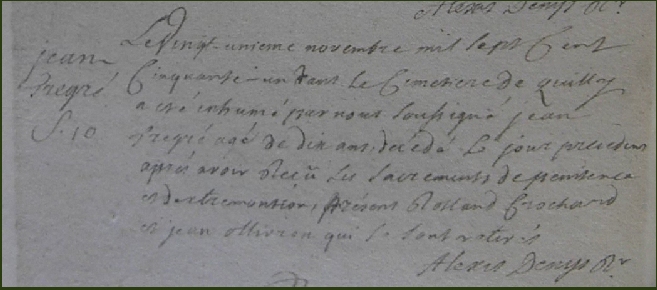 Alexis Denys Rr
jean
Tregré
S. 10
Le vingt-unieme novembre mil sept Cent
Cinquante-un dans le Cimetiere de Quilly
a eté inhumé par nous soussigné jean
Tregré agé de dix ans decedé le jour precedent
aprés avoir Reçû les sacrements de penitence
et d'extremonction, présent Rolland Crochard
et jean ollivron qui se sont retirés
Alexis Denys Rr